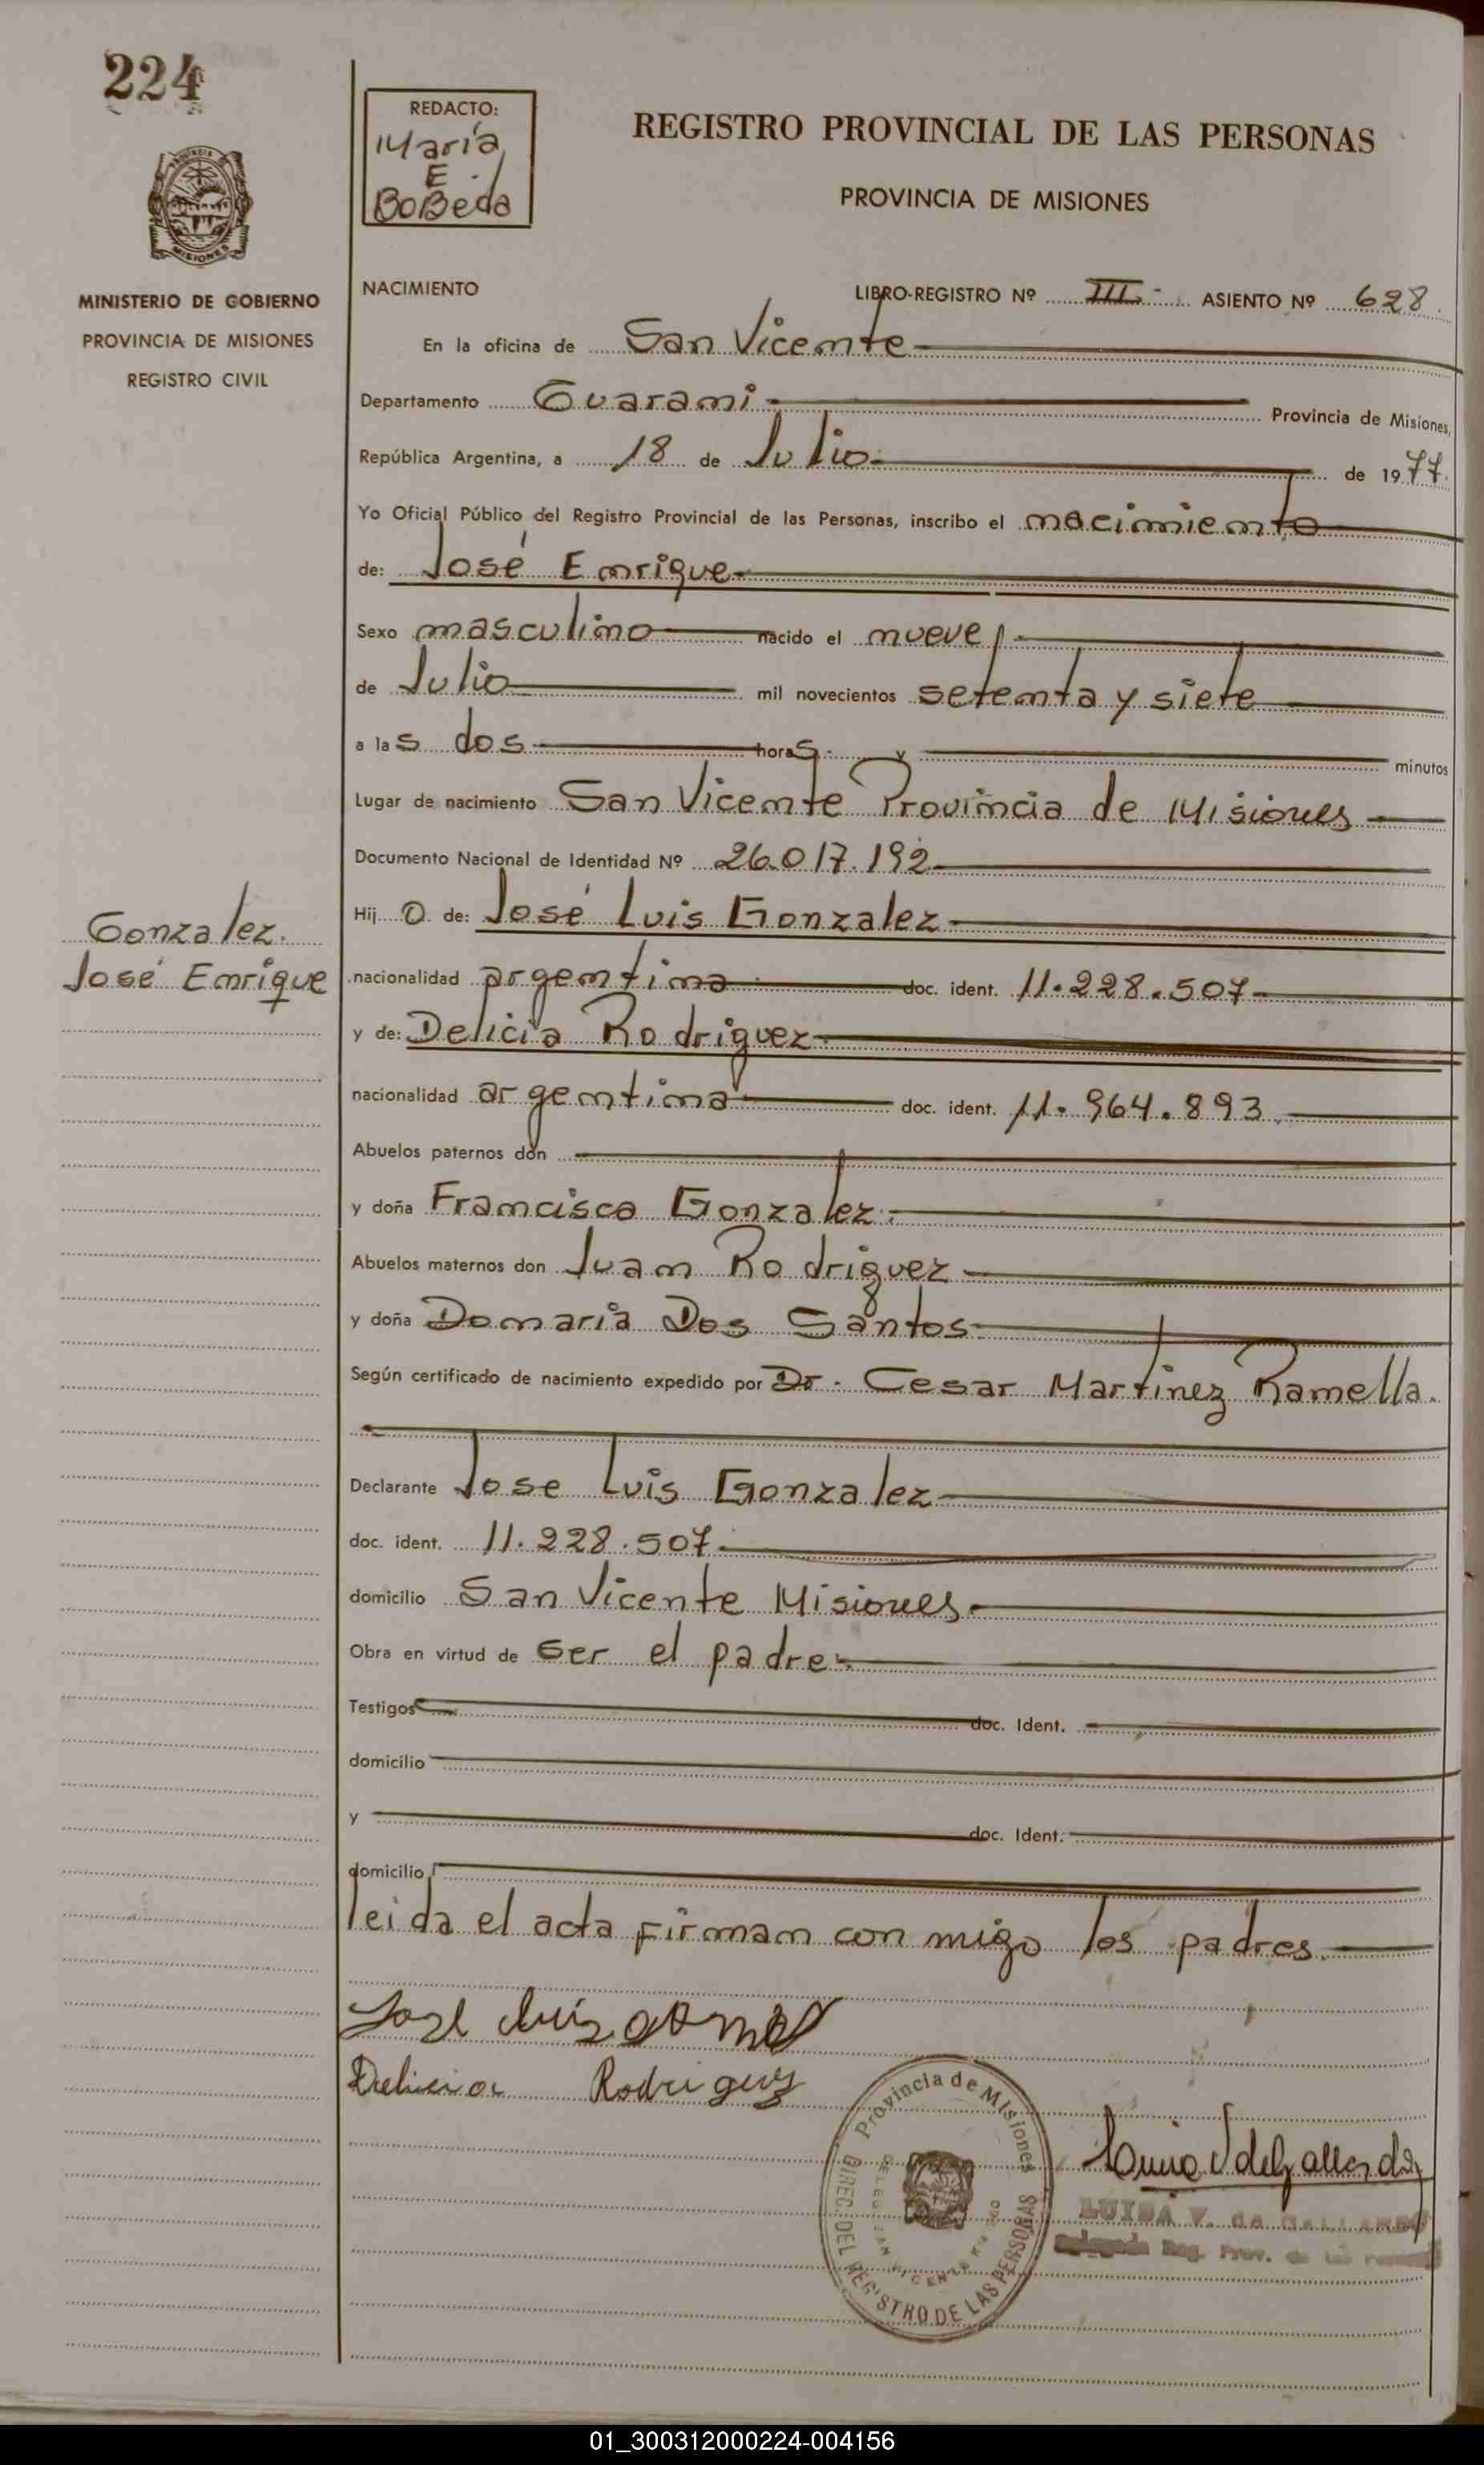 224
REDACTO:
María
E.
BoBeda
REGISTRO PROVINCIAL DE LAS PERSONAS
PROVINCIA DE MISIONES
MISIONES
MINISTERIO DE GOBIERNO
PROVINCIA DE MISIONES
REGISTRO CIVIL
NACIMIENTO
LIBRO-REGISTRO Nº III - ASIENTO Nº 628
En la oficina de San Vicente
Departamento Guarani Provincia de Misiones,
República Argentina, a 18 de Julio de 1977.
Yo Oficial Público del Registro Provincial de las Personas, inscribo el nacimiento
de: José Enrique
Sexo masculino nacido el nueve
de Julio mil novecientos setenta y siete
a las dos horas y minutos
Lugar de nacimiento San Vicente Provincia de Misiones
Documento Nacional de Identidad Nº 26.017.192
Hijo de: José Luis Gonzalez
Gonzalez.
José Enrique
nacionalidad argentina doc. ident. 11.228.507
y de: Delicia Rodriguez
nacionalidad argentina doc. ident. 11.964.893
Abuelos paternos don
y doña Francisca Gonzalez.
Abuelos maternos don Juan Rodriguez
y doña Domaria Dos Santos
Según certificado de nacimiento expedido por Dr. Cesar Martinez Ramella.
Declarante Jose Luis Gonzalez
doc. ident. 11.228.507
domicilio San Vicente Misiones
Obra en virtud de ser el padre
Testigos doc. Ident.
domicilio
y doc. Ident.
domicilio
leida el acta firman con migo los padres.
José Luis
Delicia Rodriguez
Provincia de Misiones
DIREC. DEL REGISTRO DE LAS PERSONAS
SAN VICENTE
LUISA V. de GALLARDO
Delegada Reg. Prov. de las Personas
01_300312000224-004156